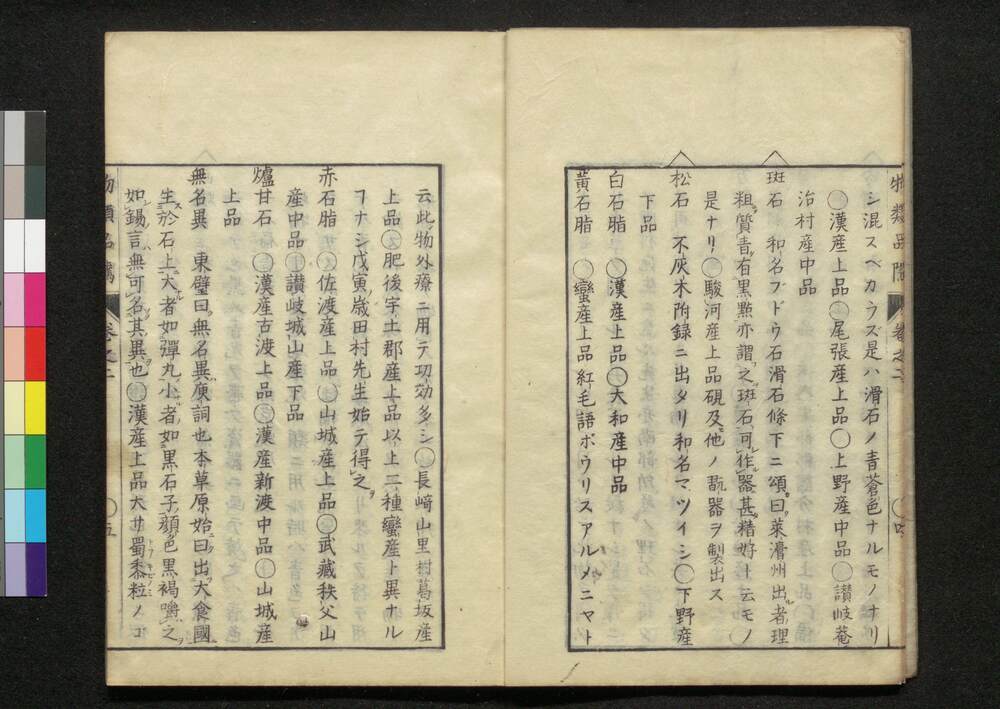 物類品隲 卷之二 〇四
シ混スベカラズ是ハ滑石ノ青蒼色ナルモノナリ
漢産上品 尾張産上品〇上野産中品 讃岐菴
治村産中品
斑石 和名ブドウ石滑石條下ニ頌曰萊濰州出者理
粗質青有黒點亦謂之斑石可作器甚精好ト云モノ
是ナリ 駿河産上品硯及他ノ翫器ヲ製出ス
松石 不灰木附録ニ出タリ和名マツイシ〇下野産
下品
白石脂 漢産上品 大和産中品
黄石脂 蠻産上品紅毛語ボウリスアルメニヤト
云此物外療ニ用テ功効多シ 長﨑山里村葛坂産
上品 肥後宇土郡産上品以上二種蠻産ト異ナル
ヿナシ戊寅歳田村先生始テ得之
赤石脂 佐渡産上品 山城産上品 武藏秩父山
産中品 讃岐城山産下品
爐甘石 漢産古渡上品 漢産新渡中品 山城産
上品
無名異 東璧曰無名異廋詞也本草原始曰出大食國
生於石上大者如彈丸小者如黒石子顔色黒褐嚼之
如錫言無可名其異也 漢産上品大サ蜀黍粒ノコ
物類品隲 卷之二 〇五